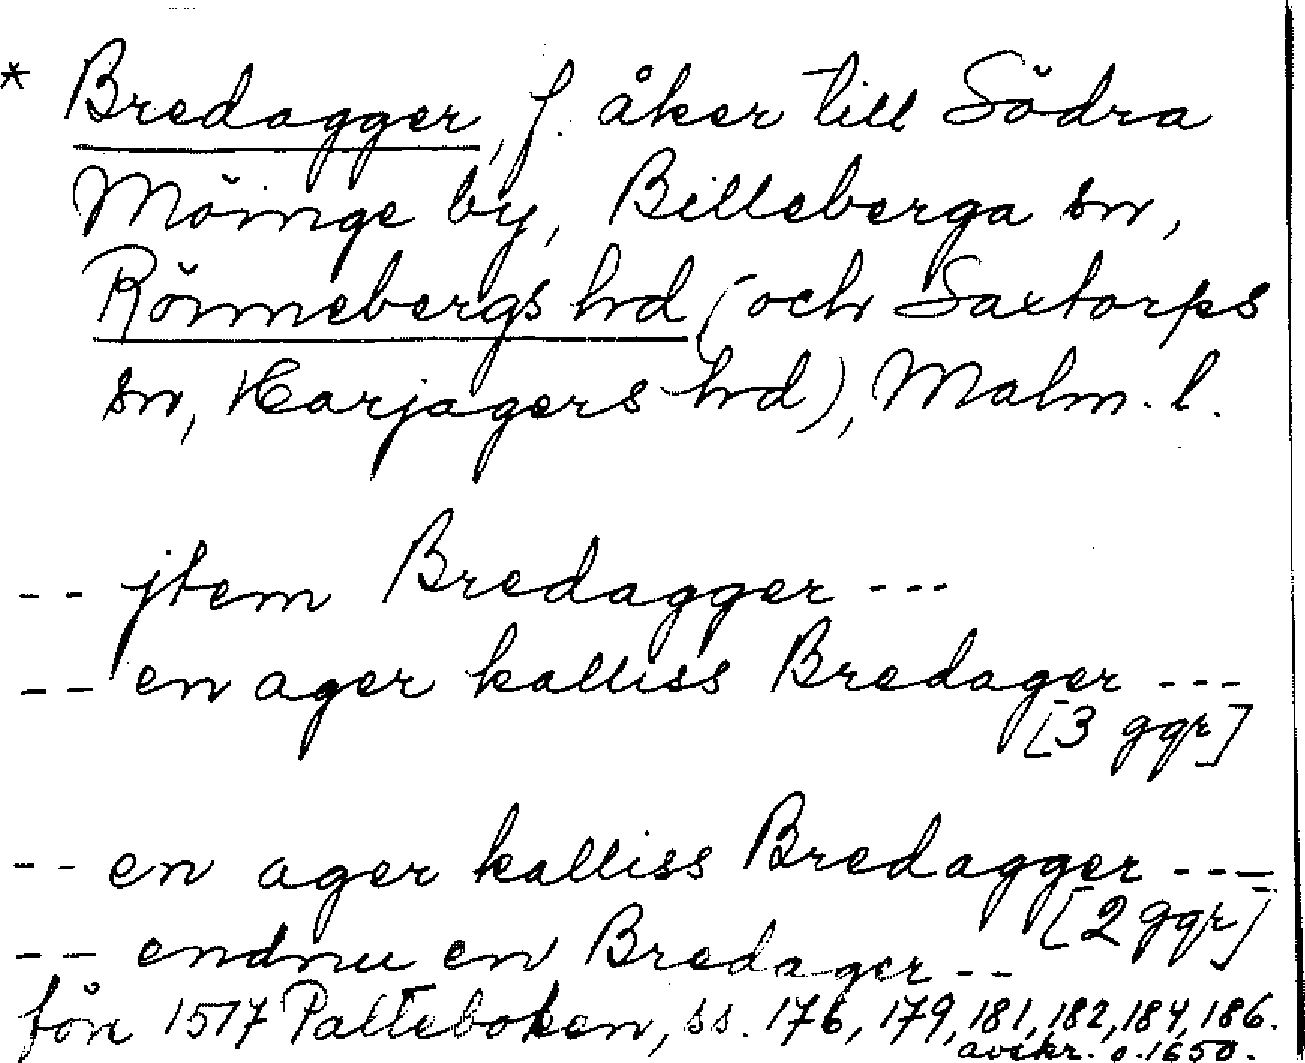 * Bredagger, f. åker till Södra
Möinge by, Billeberga sn,
Rönnebergs hd (och Saxtorps
sn, Harjagers hd), Malm. l.
-- jtem Bredagger ---
-- en ager kalliss Bredager ---
[3 ggr]
-- en ager kalliss Bredagger ---
[2 ggr]
-- endnu en Bredager --
för 1517 Palteboken, ss. 176, 179, 181, 182, 184, 186.
avskr. o. 1650.